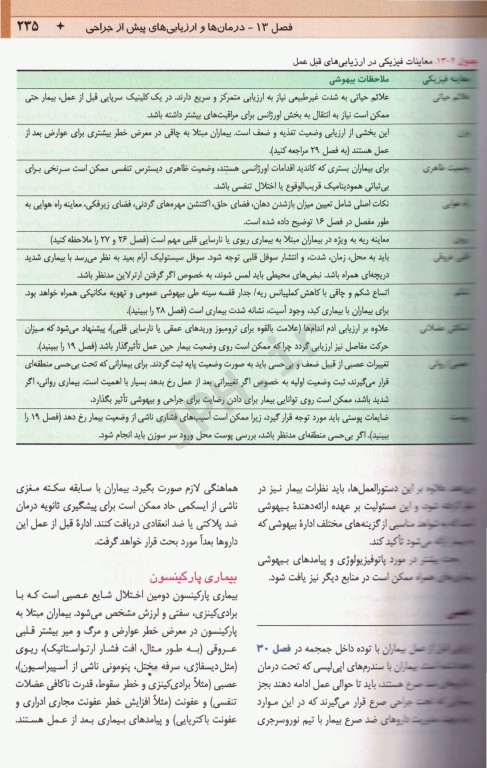 فصل ۱۳ - درمان‌ها و ارزیابی‌های پیش از جراحی + ۲۳۵
۲-۱۳. معاینات فیزیکی در ارزیابی‌های قبل عمل
معاینه فیزیکی
ملاحظات بیهوشی
علائم حیاتی
علائم حیاتی به شدت غیرطبیعی نیاز به ارزیابی متمرکز و سریع دارند. در یک کلینیک سرپایی قبل از عمل، بیمار حتی
ممکن است نیاز به انتقال به بخش اورژانس برای مراقبت‌های بیشتر داشته باشد.
وزن
این بخشی از ارزیابی وضعیت تغذیه و ضعف است. بیماران مبتلا به چاقی در معرض خطر بیشتری برای عوارض بعد از
عمل هستند (به فصل ۲۹ مراجعه کنید).
وضعیت ظاهری
برای بیماران بستری که کاندید اقدامات اورژانسی هستند، وضعیت ظاهری دیسترس تنفسی ممکن است سرنخی برای
بی‌ثباتی همودینامیک قریب‌الوقوع یا اختلال تنفسی باشد.
راه هوایی
نکات اصلی شامل تعیین میزان بازشدن دهان، فضای حلق، اکتنشن مهره‌های گردنی، فضای زیرفکی، معاینه راه هوایی به
طور مفصل در فصل ۱۶ توضیح داده شده است.
ریوی
معاینه ریه به ویژه در بیماران مبتلا به بیماری ریوی یا نارسایی قلبی مهم است (فصل ۲۶ و ۲۷ را ملاحظه کنید)
قلبی عروقی
باید به محل، زمان، شدت، و انتشار سوفل قلبی توجه شود. سوفل سیستولیک آرام بعید به نظر می‌رسد با بیماری شدید
دریچه‌ای همراه باشد. نبض‌های محیطی باید لمس شوند، به خصوص اگر گرفتن ارترلاین مدنظر باشد.
شکم
اتساع شکم و چاقی با کاهش کمپلیانس ریه/ جدار قفسه سینه طی بیهوشی عمومی و تهویه مکانیکی همراه خواهد بود.
برای بیماران با بیماری کبد، وجود آسیت، نشانه شدت بیماری است (فصل ۲۸ را ببینید).
اسکلتی عضلانی
علاوه بر ارزیابی ادم اندام‌ها (علامت بالقوه برای ترومبوز وریدهای عمقی یا نارسایی قلبی)، پیشنهاد می‌شود که میزان
حرکت مفاصل نیز ارزیابی گردد چراکه ممکن است روی وضعیت بیمار حین عمل تأثیرگذار باشد (فصل ۱۹ را ببینید).
عصبی/ روانی
تغییرات عصبی از قبیل ضعف و بی‌حسی باید به صورت وضعیت پایه ثبت گردند. برای بیمارانی که تحت بی‌حسی منطقه‌ای
قرار می‌گیرند، ثبت وضعیت اولیه به خصوص اگر تغییراتی بعد از عمل رخ بدهد بسیار با اهمیت است. بیماری روانی، اگر
شدید باشد، ممکن است روی توانایی بیمار برای دادن رضایت برای جراحی و بیهوشی تأثیر بگذارد.
پوست
ضایعات پوستی باید مورد توجه قرار گیرد، زیرا ممکن است آسیب‌های فشاری ناشی از وضعیت بیمار رخ دهد (فصل ۱۹ را
ببینید). اگر بی‌حسی منطقه‌ای مدنظر باشد، بررسی پوست محل ورود سر سوزن باید انجام شود.
علاوه بر این دستورالعمل‌ها، باید نظرات بیمار نیز در
شود، و این مسئولیت بر عهده ارائه‌دهندهٔ بیهوشی
مناسبی از گزینه‌های مختلف ادارهٔ بیهوشی که
می‌شود تأکید کند.
بیشتر در مورد پاتوفیزیولوژی و پیامدهای بیهوشی
همراه ممکن است در منابع دیگر نیز یافت شود.
عصبی
از عمل بیماران با توده داخل جمجمه در فصل ۳۰
است. بیماران با سندرم‌های اپی‌لپسی که تحت درمان
ضد صرع هستند، باید تا حوالی عمل ادامه دهند بجز
تحت جراحی صرع قرار می‌گیرند که در این موارد
مدیریت داروهای ضد صرع بیمار با تیم نوروسرجری
هماهنگی لازم صورت بگیرد. بیماران با سابقه سکته مغزی
ناشی از ایسکمی حاد ممکن است برای پیشگیری ثانویه درمان
ضد پلاکتی یا ضد انعقادی دریافت کنند. ادارهٔ قبل از عمل این
داروها بعداً مورد بحث قرار خواهد گرفت.
بیماری پارکینسون
بیماری پارکینسون دومین اختلال شایع عصبی است که با
برادی‌کینزی، سفتی و لرزش مشخص می‌شود. بیماران مبتلا به
پارکینسون در معرض خطر عوارض و مرگ و میر بیشتر قلبی
عروقی (به طور مثال، افت فشار ارتواستاتیک)، ریوی
(مثل دیسفاژی، سرفه مختل، پنومونی ناشی از آسپیراسیون)،
عصبی (مثلاً برادی‌کینزی و خطر سقوط، قدرت ناکافی عضلات
تنفسی) و عفونت (مثلاً افزایش خطر عفونت مجاری ادراری و
عفونت باکتریایی) و پیامدهای بیماری بعد از عمل هستند.